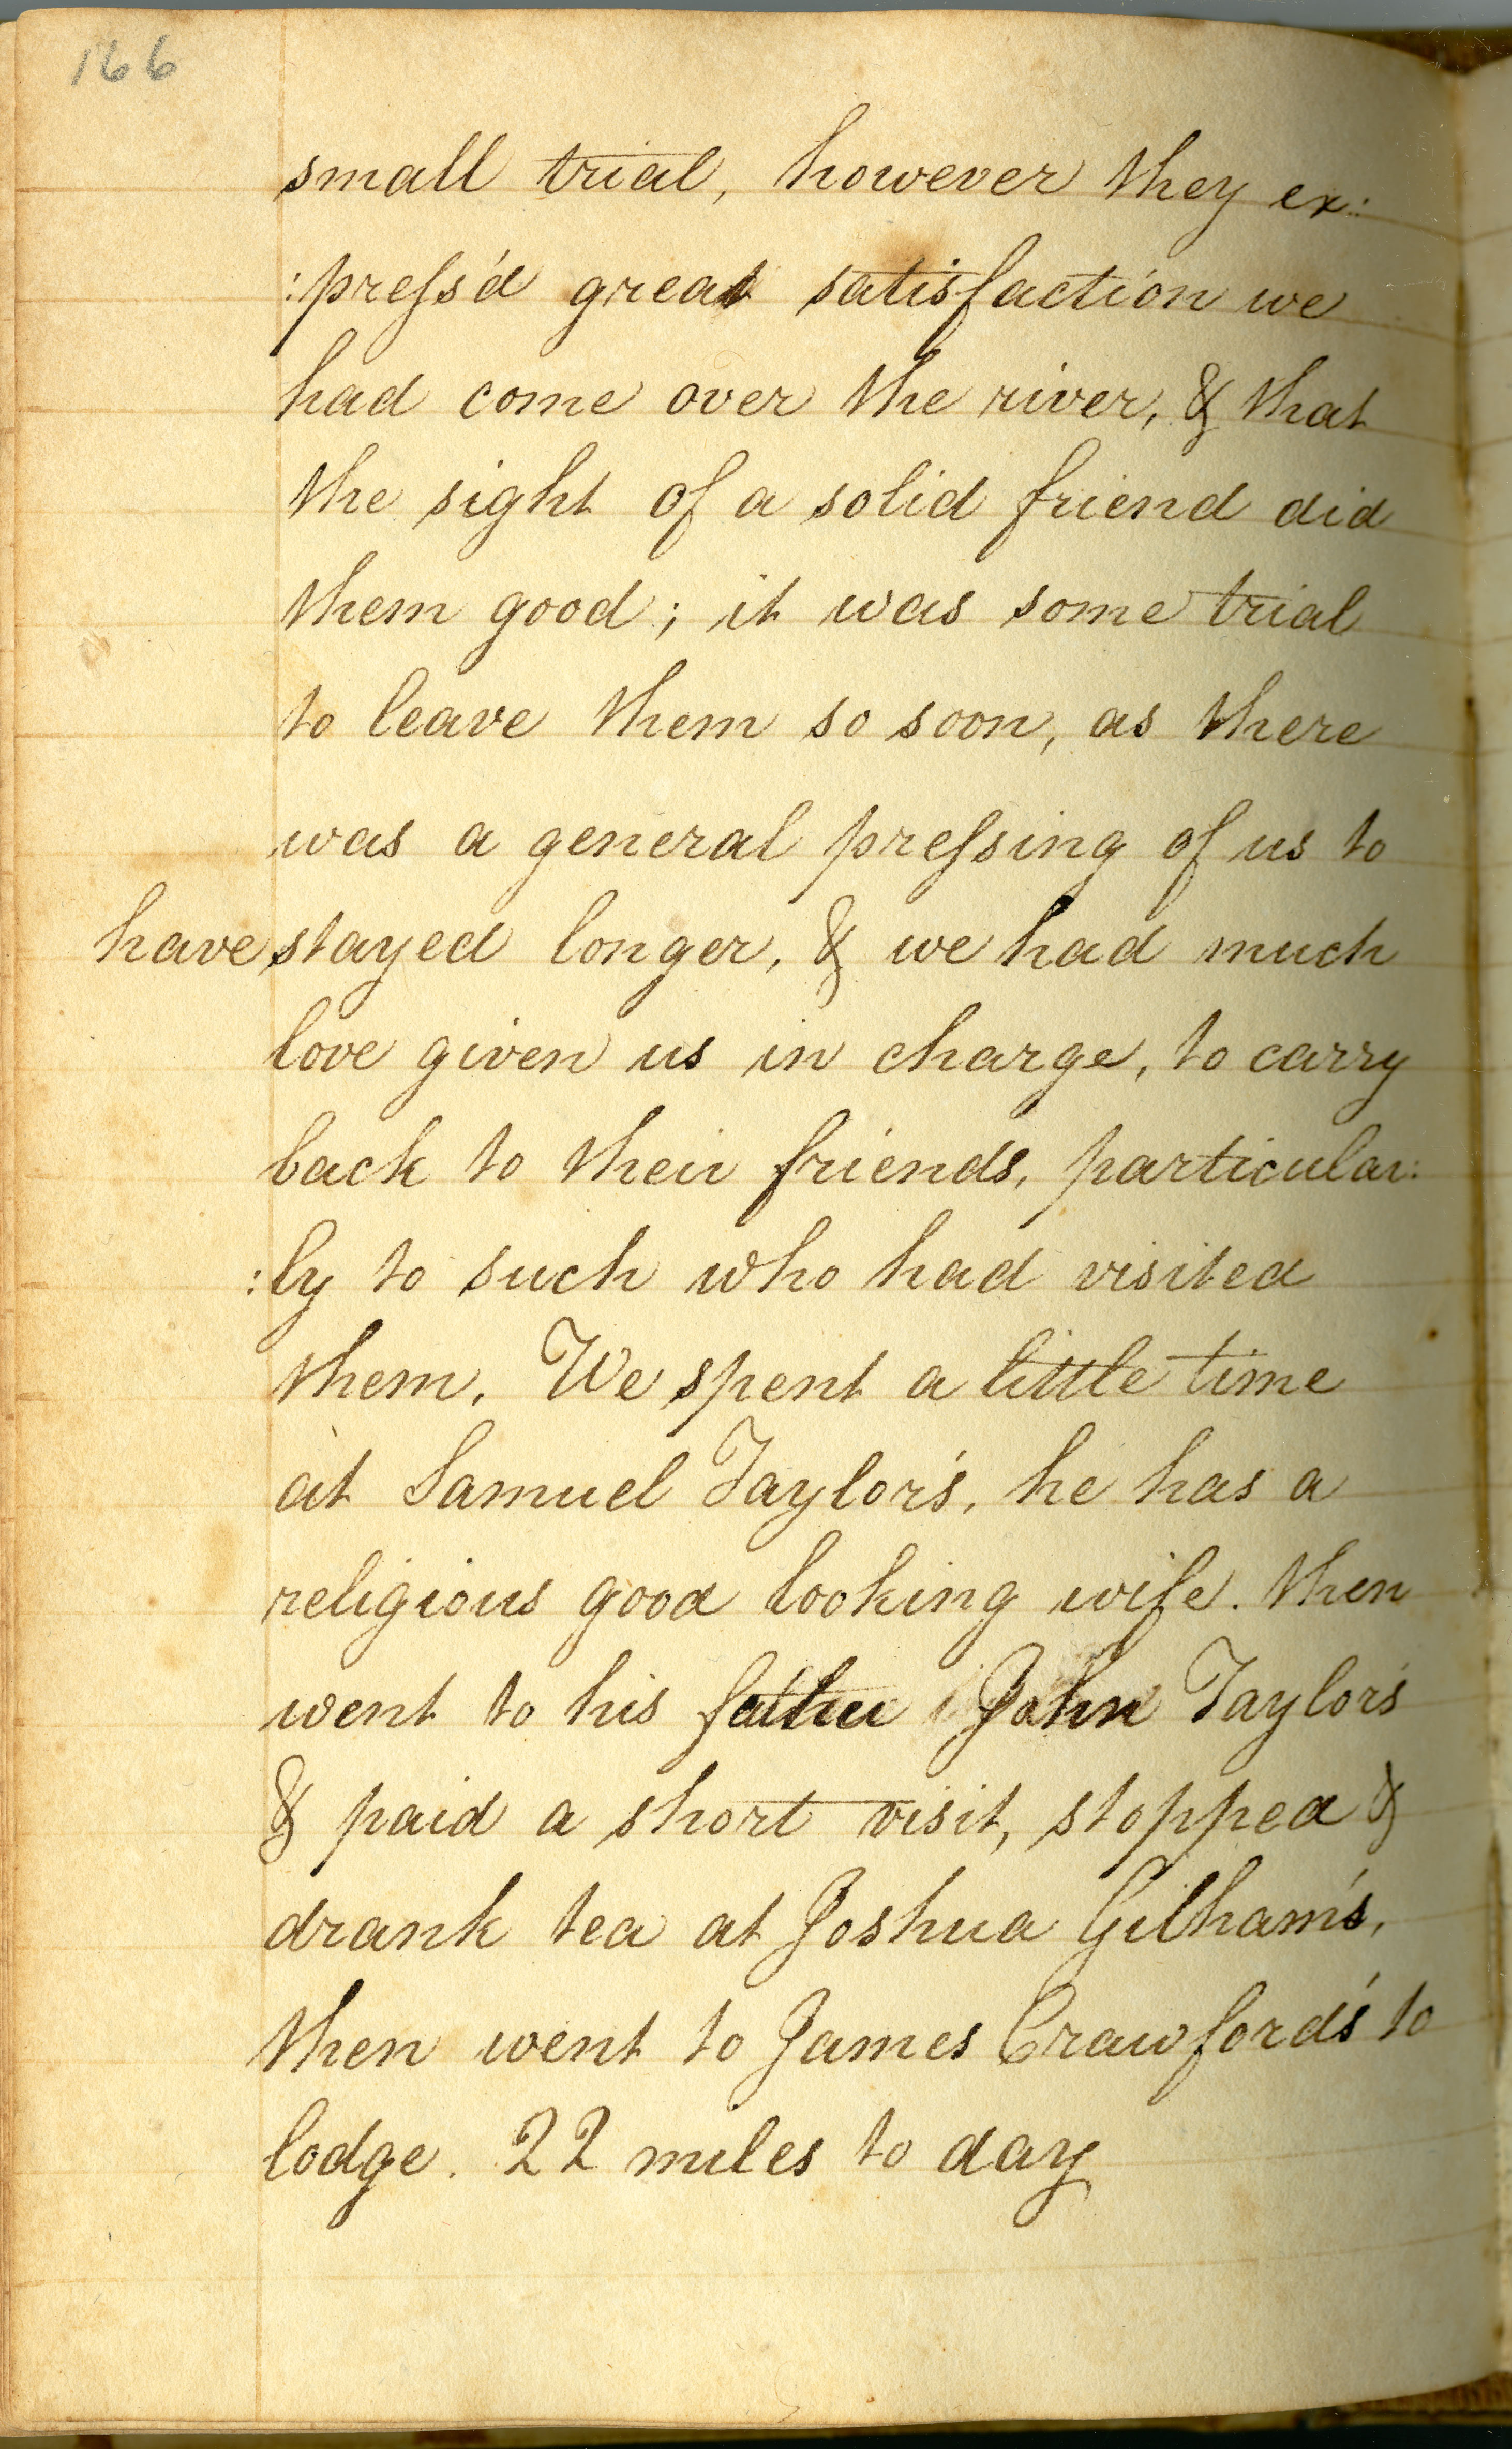 166
small trial, however they ex:
:press'd great satisfaction we
had come over the river, & that
the sight of a solid friend did
them good; it was some trial
to leave them so soon, as there
was a general pressing of us to
have stayed longer, & we had much
love given us in charge, to carry
back to their friends, particular:
:ly to such who had visited
them. We spent a little time
at Samuel Taylor's, he has a
religious good looking wife. then
went to his father John Taylor's
& paid a short visit, stopped &
drank tea at Joshua Gilham's,
then went to James Crawford's to
lodge. 22 miles to day